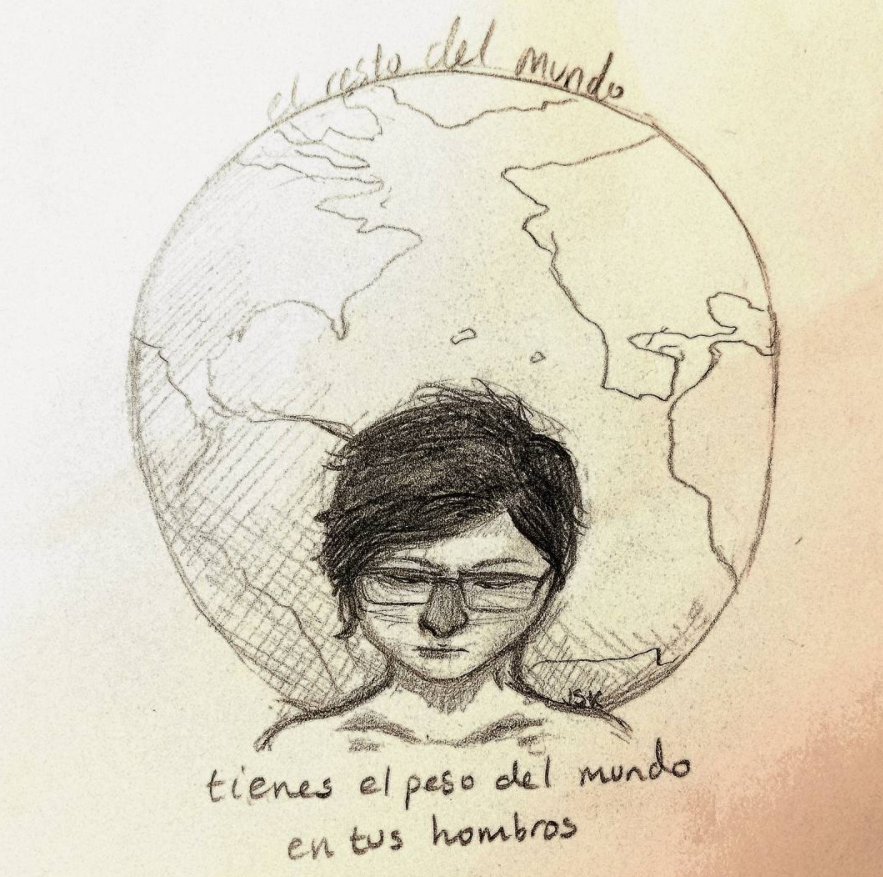 el resto del mundo
JSK
tienes el peso del mundo
en tus hombros